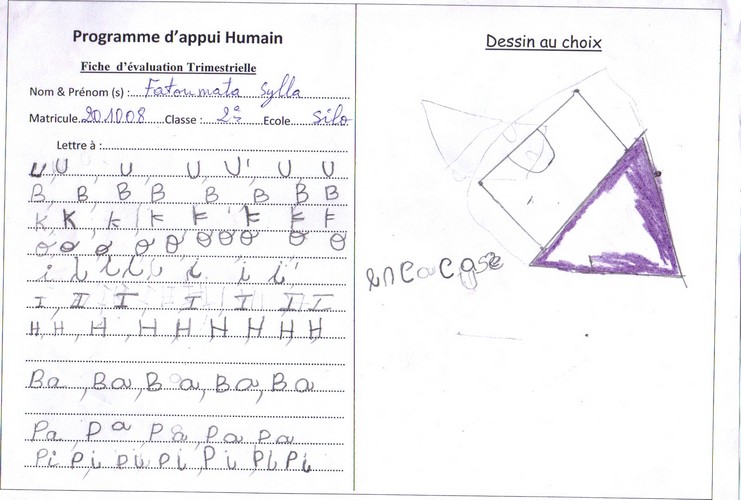 Programme d'appui Humain
Fiche d'évaluation Trimestrielle
Nom & Prénom (s) : Fatoumata Sylla
Matricule 201008 Classe : 2è Ecole Silo
Lettre à :
U U U U U U U
B B B B B B B B
K K K K K K K K
i i i i i i i i
I I I I I I I
H H H H H H H H H
Ba , Ba , B a , Ba , Ba
Pa , Pa , Pa , Pa , Pa
Pi Pi Pi Pi Pi Pi Pi
Dessin au choix